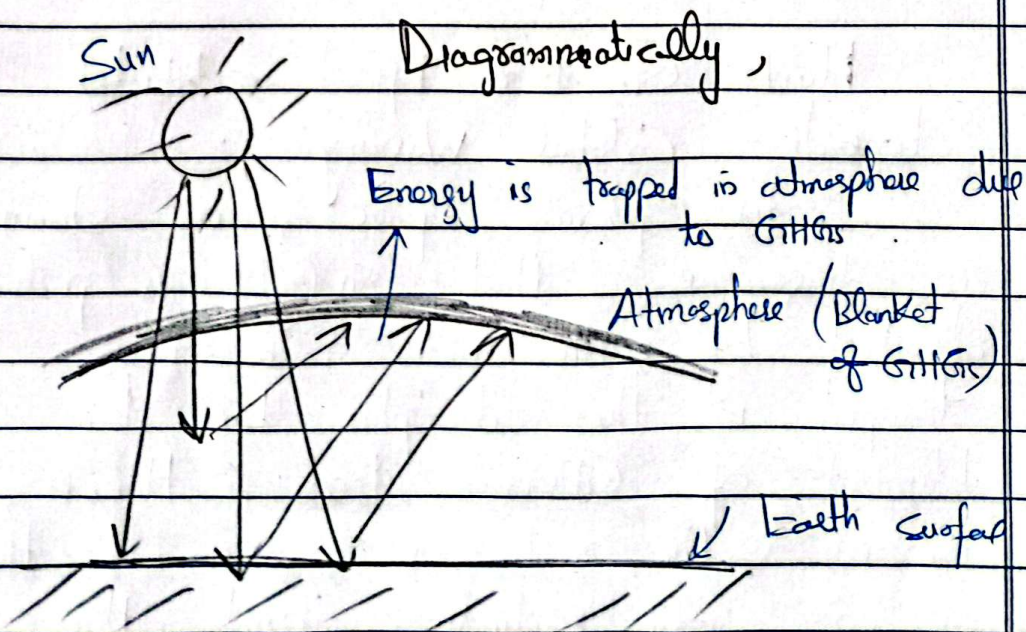 Sun
Diagrammatically,
Energy is trapped in atmosphere due
to GHGs
Atmosphere (Blanket
of GHGs)
Earth Surface